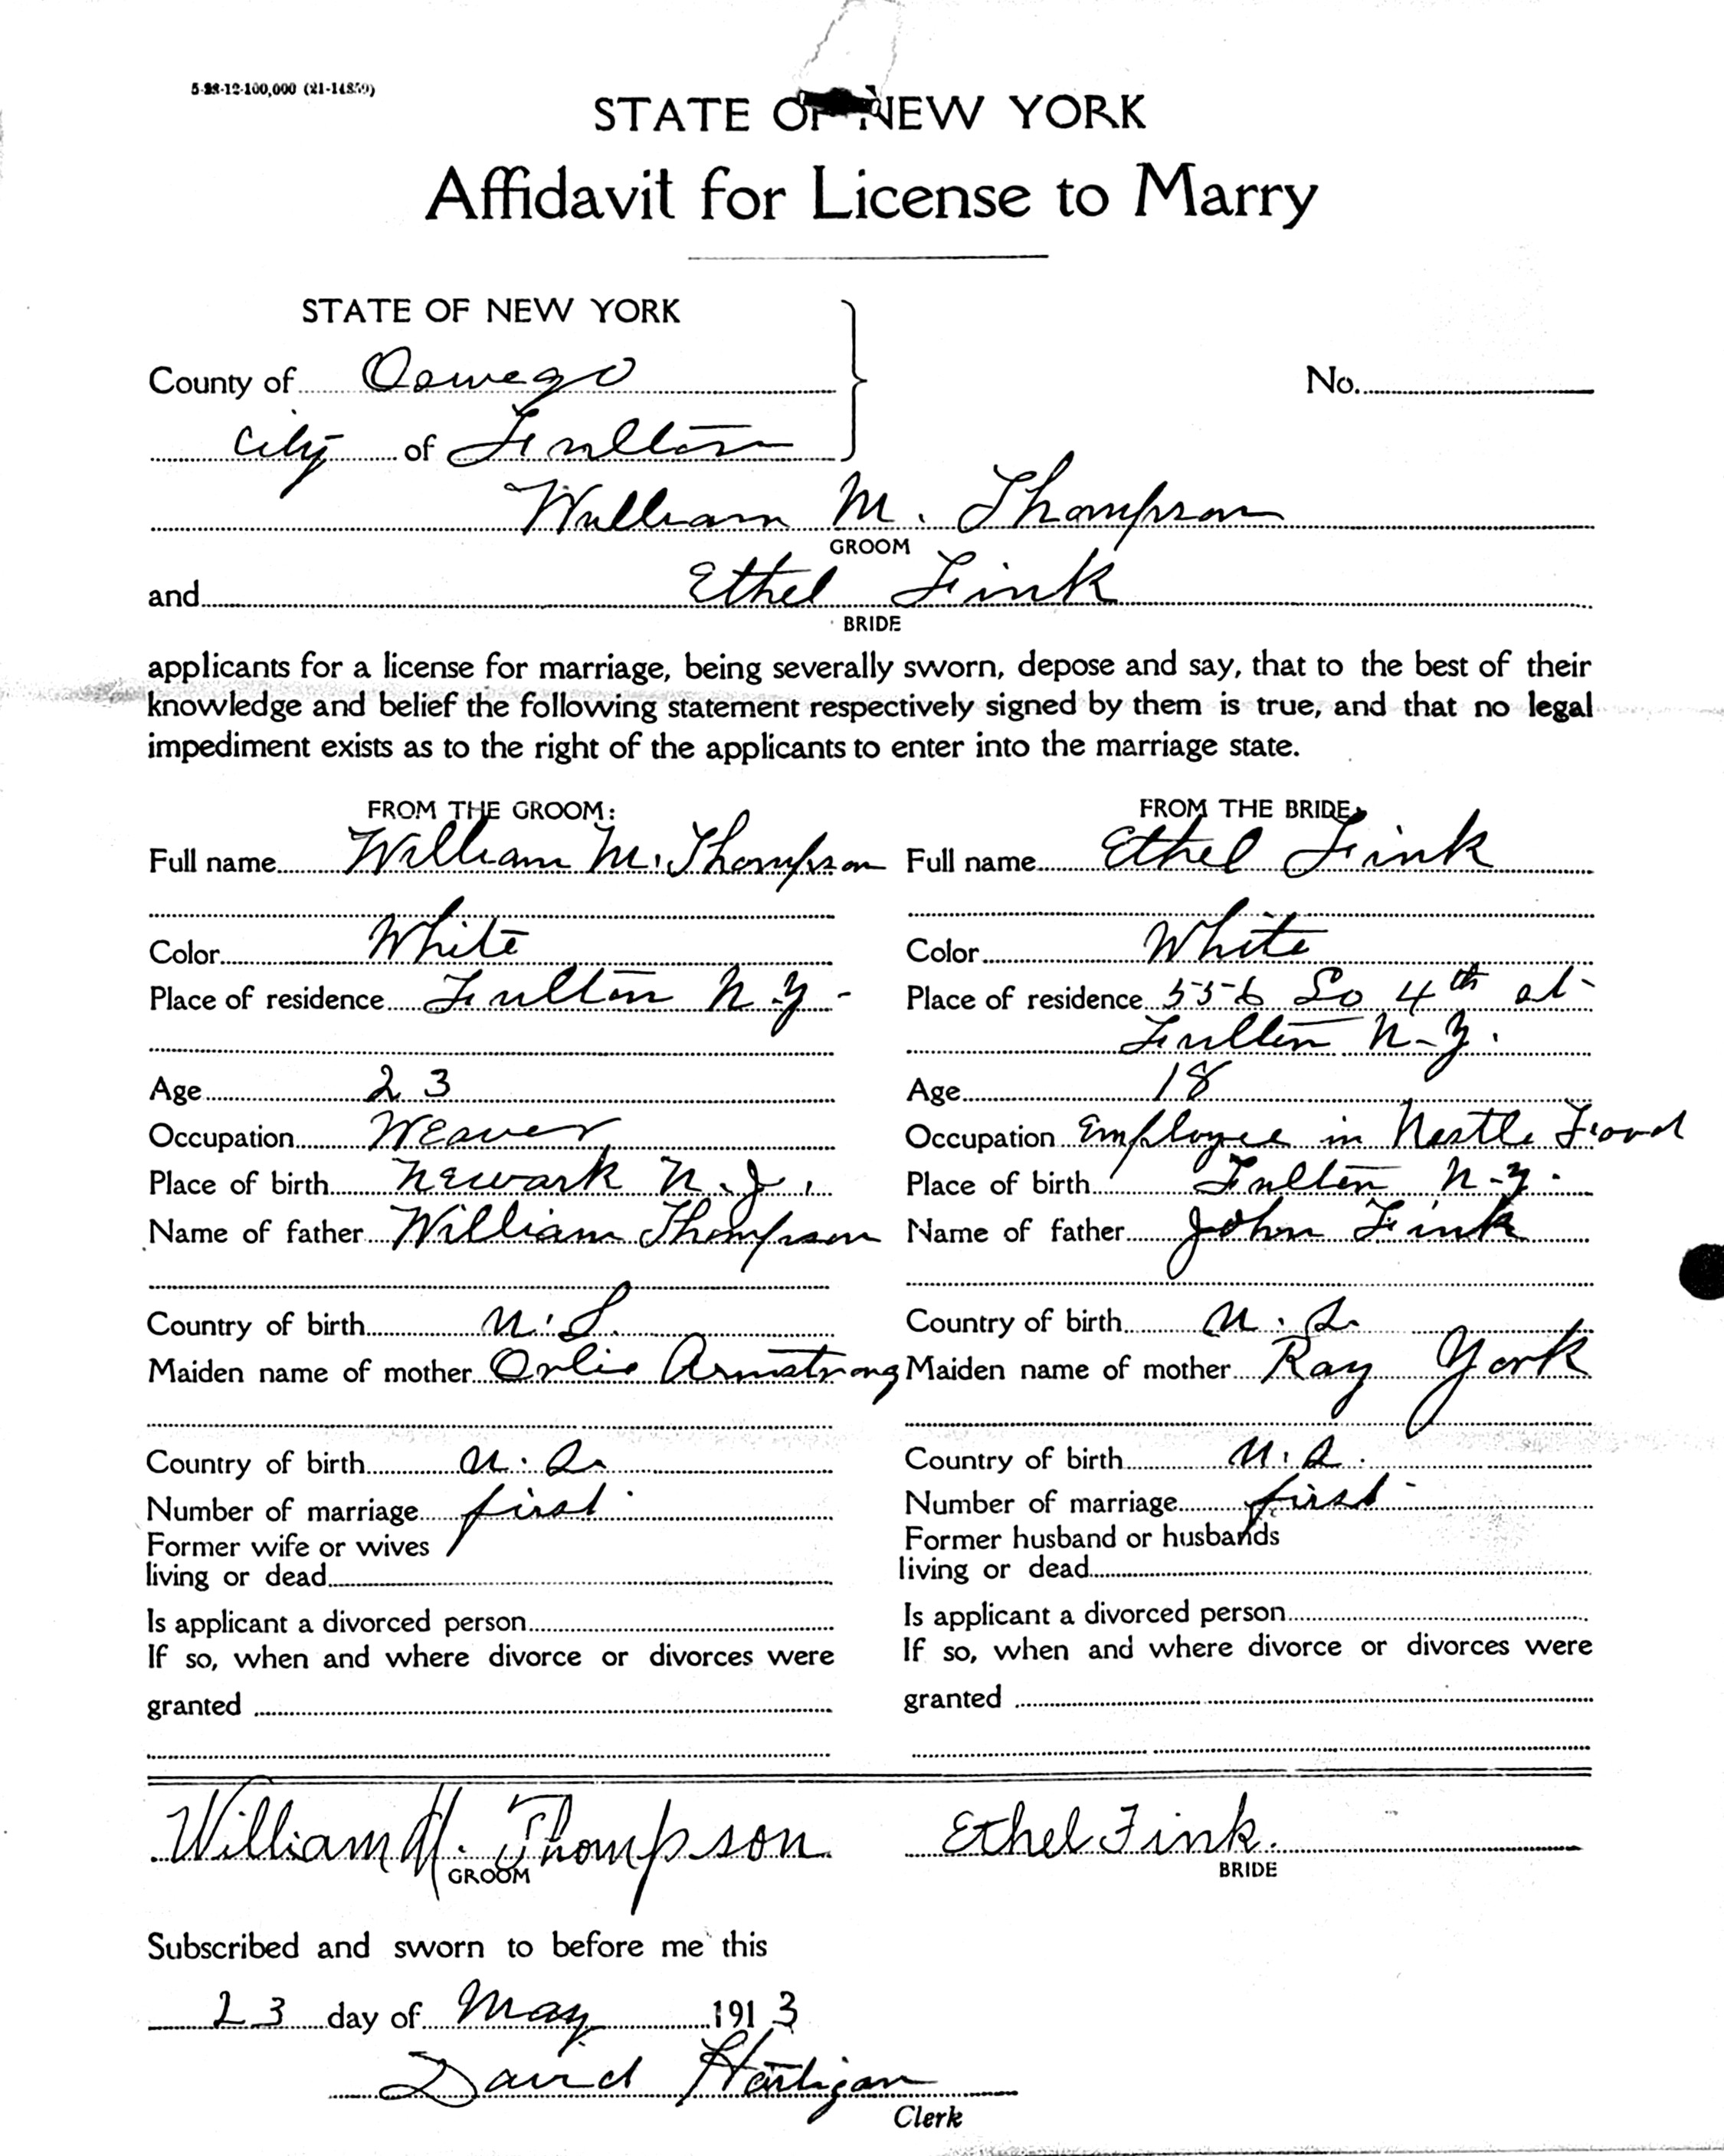 5-28-12-100,000 (21-14859)
STATE OF NEW YORK
Affidavit for License to Marry
STATE OF NEW YORK
County of Oswego
No.
City of Fulton
William M. Thompson
GROOM
and Ethel Fink
BRIDE
applicants for a license for marriage, being severally sworn, depose and say, that to the best of their
knowledge and belief the following statement respectively signed by them is true, and that no legal
impediment exists as to the right of the applicants to enter into the marriage state.
FROM THE GROOM:
Full name William M. Thompson
Color White
Place of residence Fulton N.Y.
Age 23
Occupation Weaver
Place of birth Newark N.J.
Name of father William Thompson
Country of birth U.S.
Maiden name of mother Orlie Armstrong
Country of birth U.S.
Number of marriage first
Former wife or wives
living or dead
Is applicant a divorced person
If so, when and where divorce or divorces were
granted
FROM THE BRIDE:
Full name Ethel Fink
Color White
Place of residence 556 So 4th st
Fulton N.Y.
Age 18
Occupation Employee in Nestle Food
Place of birth Fulton N.Y.
Name of father John Fink
Country of birth U.S.
Maiden name of mother Ray York
Country of birth U.S.
Number of marriage first
Former husband or husbands
living or dead
Is applicant a divorced person
If so, when and where divorce or divorces were
granted
William M. Thompson
GROOM
Ethel Fink.
BRIDE
Subscribed and sworn to before me this
23 day of May 1913
David Hartigan
Clerk